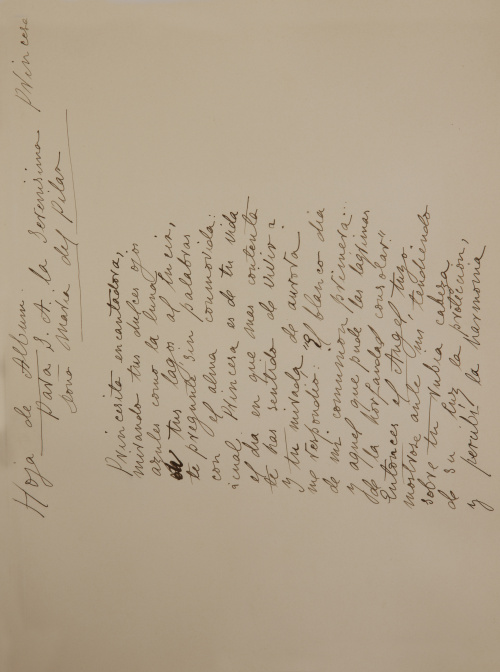 Hoja de Album.
Para S. A. la Serenisima Princesa
Dona Maria del Pilar
Princesita encantadora,
mirando tus dulces ojos
azules como la luna
en tus lagos al lucir,
te pregunté sin palabras
con el alma conmovida:
¿cual Princesa es de tu vida
el dia en que mas contenta
te has sentido de vivir?
y tu mirada de aurora
me respondio: "el blanco dia
de mi comunion primera
y aquel que pude las lagrimas
de la horfandad consolar."
Entonces el Angel tuyo
mostrose ante mi, tendiendo
sobre tu rubia cabeza
de su luz la proteccion,
y percibi la harmonia